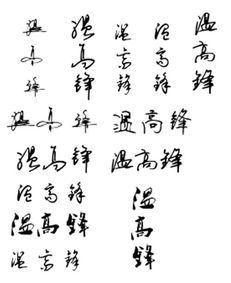 温高锋
温高锋
温高锋
温高锋
温高锋
温高锋
温高锋
温高锋
温高锋
温高锋
温高锋
温高锋
温高锋